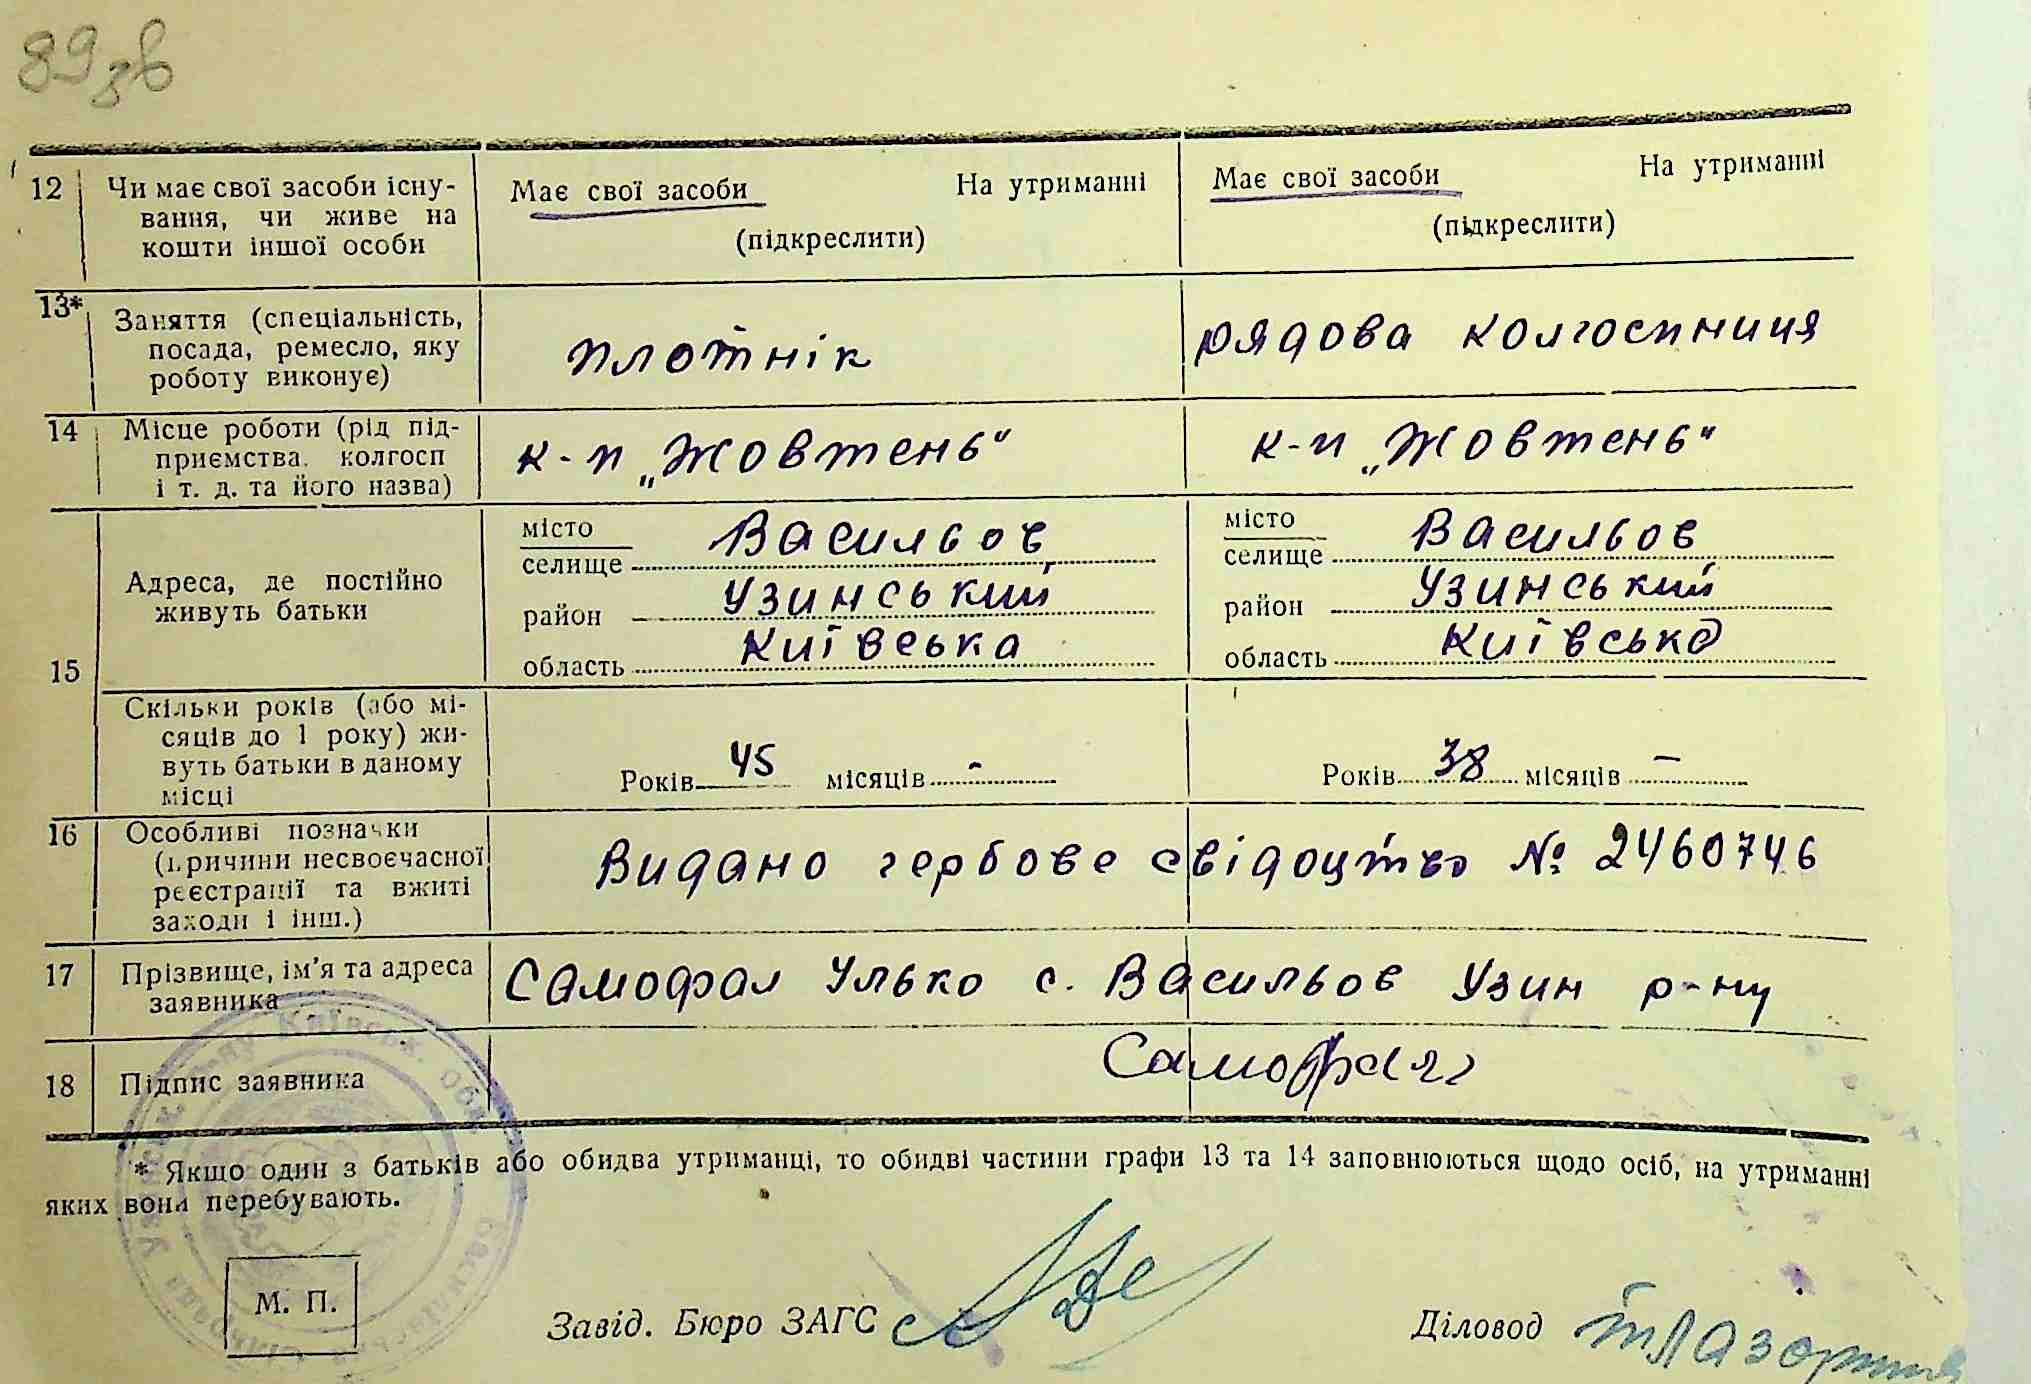 89 зв
12 Чи має свої засоби існу-
вання, чи живе на
кошти іншої особи
Має свої засоби На утриманні
(підкреслити)
Має свої засоби На утриманні
(підкреслити)
13* Заняття (спеціальність,
посада, ремесло, яку
роботу виконує)
плотнік
рядова колгоспниця
14 Місце роботи (рід під-
приємства, колгосп
і т. д. та його назва)
к-п „Жовтень"
к-п „Жовтень"
15 Адреса, де постійно
живуть батьки
місто
селище Васильов
район Узинський
область Київська
місто
селище Васильов
район Узинський
область Київська
Скільки років (або мі-
сяців до 1 року) жи-
вуть батьки в даному
місці
Років 45 місяців -
Років 38 місяців -
16 Особливі позначки
(причини несвоєчасної
реєстрації та вжиті
заходи і інш.)
Видано гербове свідоцтво № 2460746
17 Прізвище, ім'я та адреса
заявника
Самофал Улько с. Васильов Узин р-ну
18 Підпис заявника
Самофал
* Якщо один з батьків або обидва утриманці, то обидві частини графи 13 та 14 заповнюються щодо осіб, на утриманні
яких вони перебувають.
М. П.
Завід. Бюро ЗАГС
Діловод